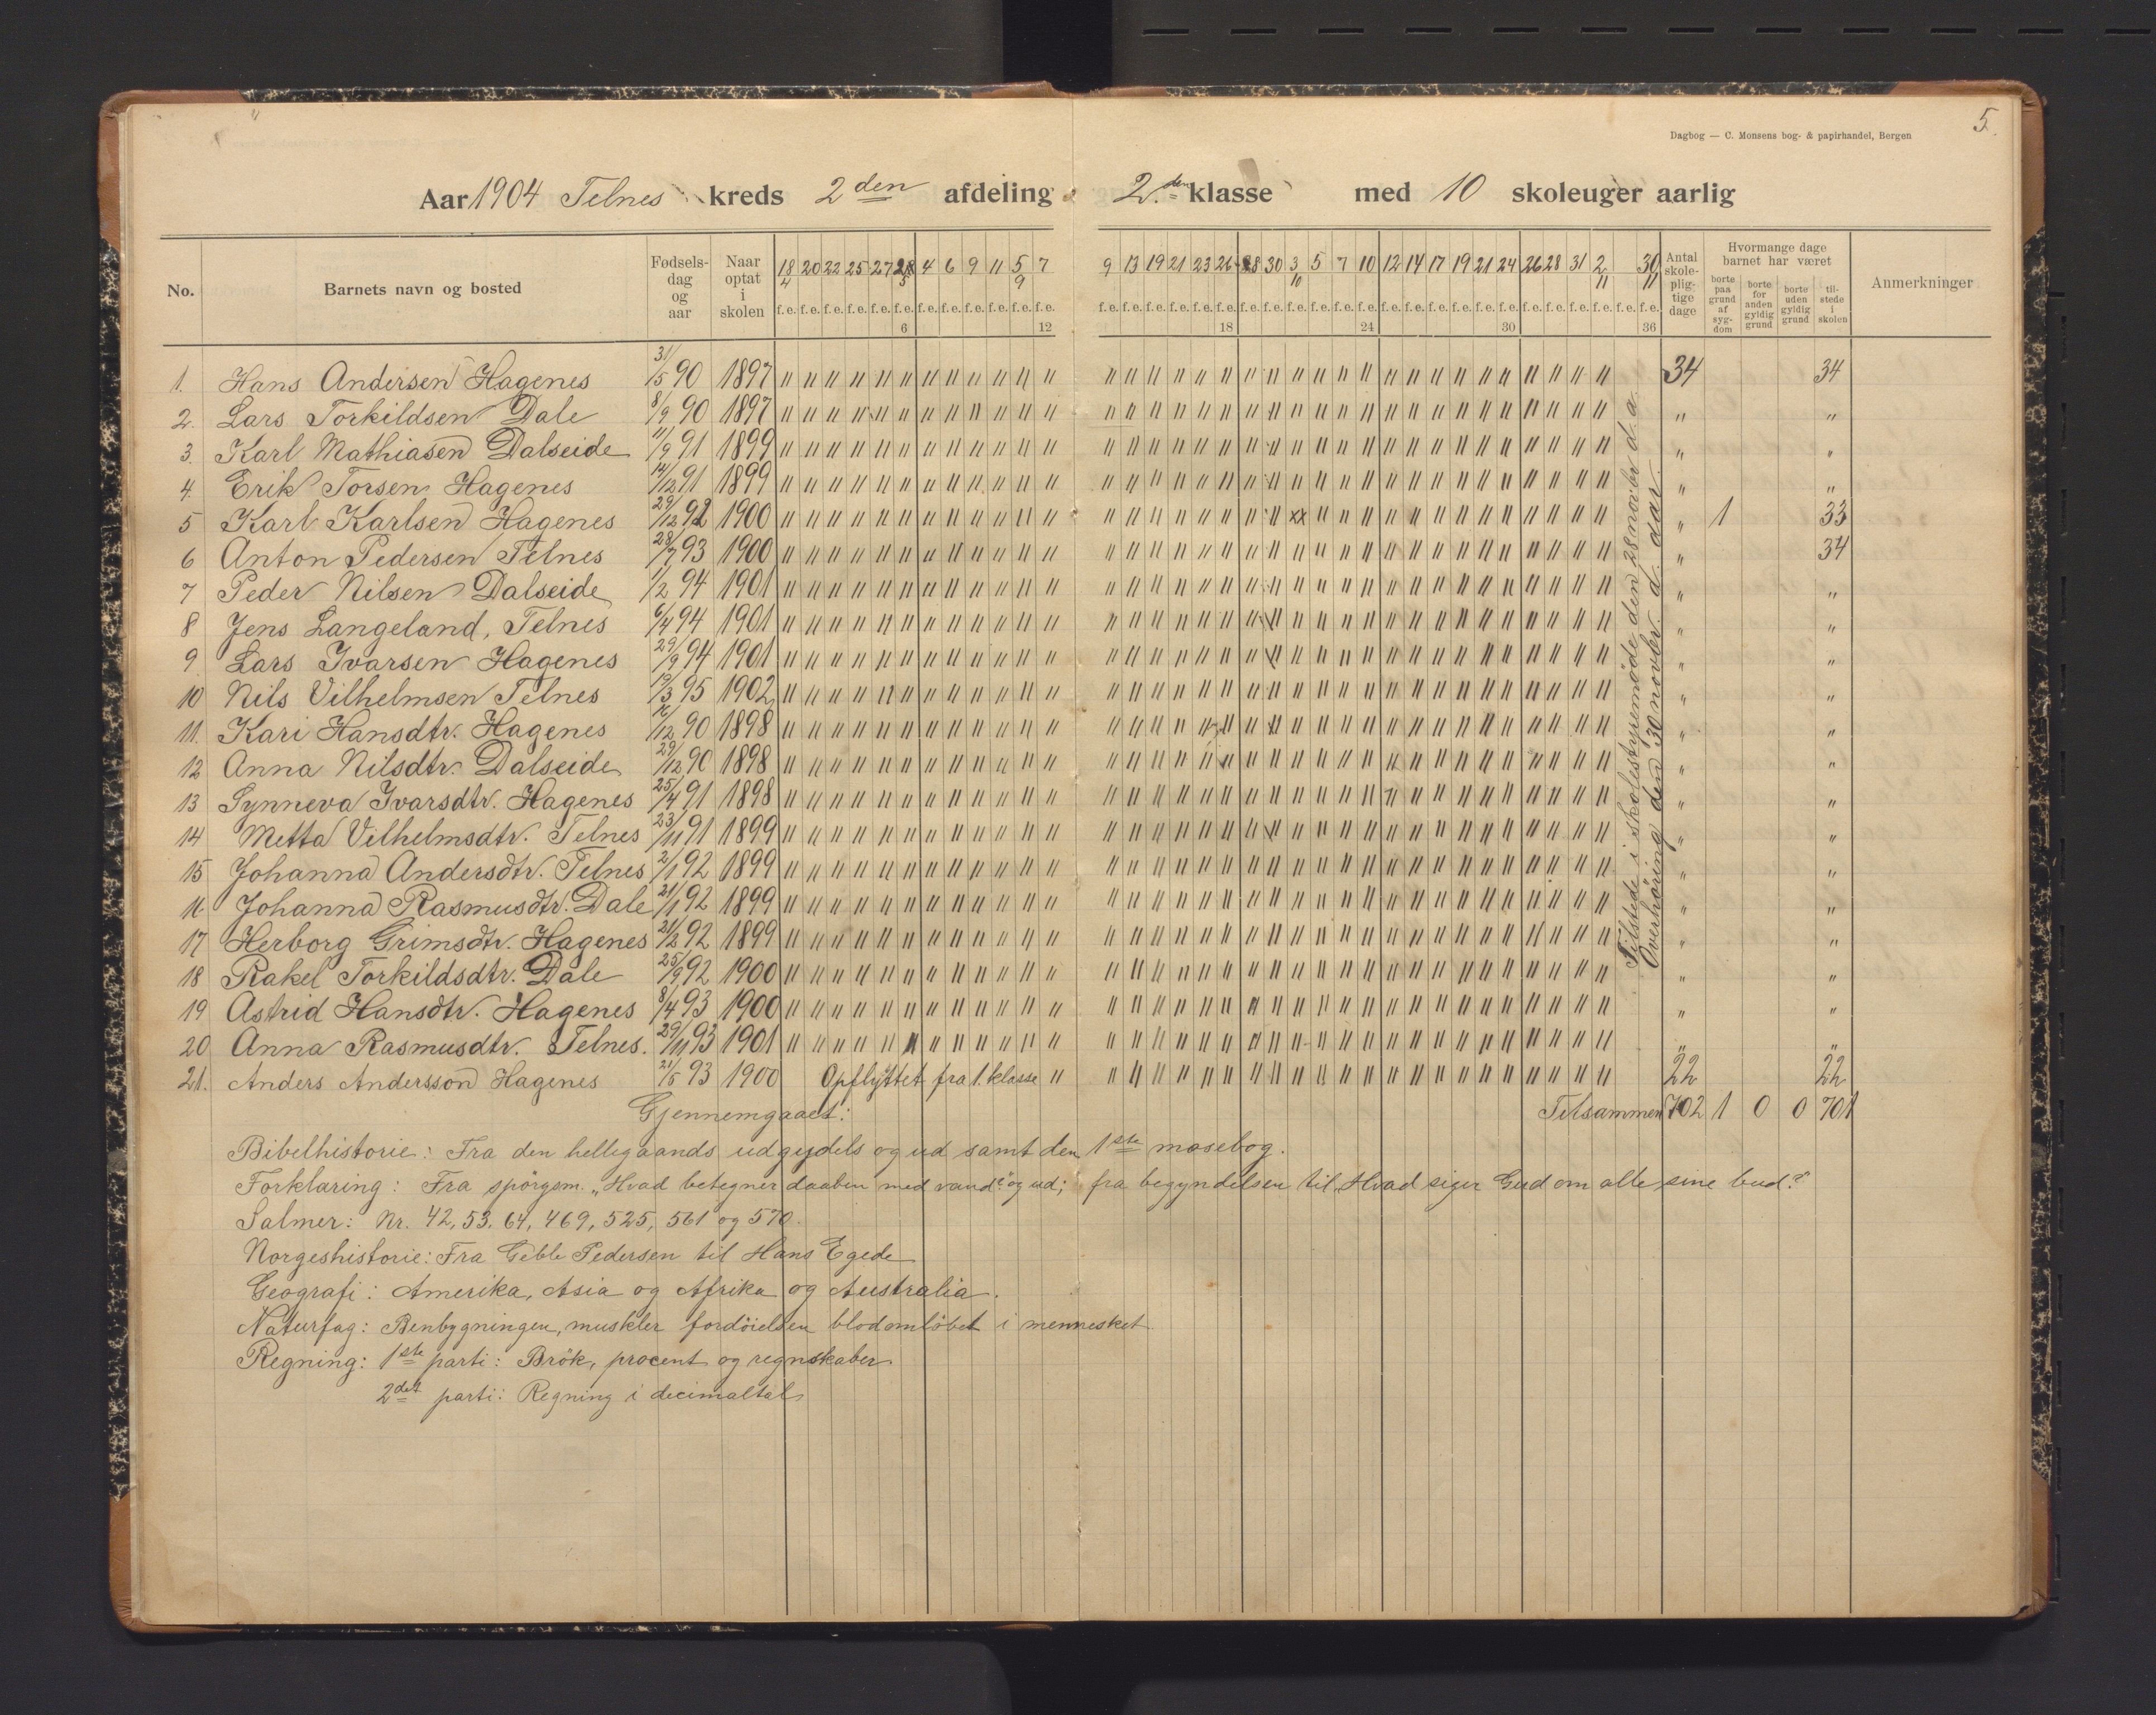 5.
Dagbog — C. Monsens bog- & papirhandel, Bergen
Aar 1904 Telnes kreds 2den afdeling 2.den klasse med 10 skoleuger aarlig
No. Barnets navn og bosted Fødselsdag og aar Naar optat i skolen 18/4 20 22 25 27 28/5 4 6 9 11 5/9 7 9 13 19 21 23 26 28 30 3/10 5 7 10 12 14 17 19 21 24 26 28 31 2/11 30/11 Antal skolepligtige dage Hvormange dage barnet har været Anmerkninger
borte paa grund af sygdom borte for anden gyldig grund borte uden gyldig grund tilstede i skolen
f.e. f.e. f.e. f.e. f.e. f.e. f.e. f.e. f.e. f.e. f.e. f.e. f.e. f.e. f.e. f.e. f.e. f.e. f.e. f.e. f.e. f.e. f.e. f.e. f.e. f.e. f.e. f.e. f.e. f.e. f.e. f.e. f.e. f.e. f.e. f.e.
6 12 18 24 30 36
1. Hans Andersen Hagenes 31/5 90 1897 34 34
2. Lars Torkildsen Dale 8/9 90 1897 " "
3. Karl Mathiasen Dalseide 11/9 91 1899 " "
4. Erik Torsen Hagenes 14/12 91 1899 " "
5 Karl Karlsen Hagenes 29/12 92 1900 xx " 1 33
6 Anton Pedersen Telnes 28/7 93 1900 " 34
7 Peder Nilsen Dalseide 1/2 94 1901 " "
8 Jens Langeland, Telnes 6/4 94 1901 " "
9. Lars Ivarsen Hagenes 29/9 94 1901 " "
10 Nils Vilhelmsen Telnes 19/3 95 1902 " "
11. Kari Hansdtr. Hagenes 16/12 90 1898 " "
12 Anna Nilsdtr. Dalseide 29/12 90 1898 " "
13 Synneva Ivarsdtr. Hagenes 25/4 91 1898 " "
14 Metta Vilhelmsdtr. Telnes 23/11 91 1899 " "
15 Johanna Andersdtr. Telnes 2/1 92 1899 " "
16 Johanna Rasmusdtr. Dale 21/1 92 1899 " "
17 Herborg Grimsdtr. Hagenes 21/2 92 1899 " "
18 Rakel Torkildsdtr. Dale 25/9 92 1900 " "
19 Astrid Hansdtr. Hagenes 8/4 93 1900 " "
20 Anna Rasmusdtr. Telnes. 29/11 93 1901 " "
21. Anders Andersson Hagenes 21/5 93 1900 Opflyttet fra 1. klasse 22 22
Tilstede i skolestyremöde den 28 novbr d. a.
Overhöring den 30 novbr. d. aar.
Gjennemgaaet: Tilsammen 702 1 0 0 701
Bibelhistorie: Fra den helligaands udgydels og ud samt den 1ste mosebog.
Forklaring: Fra spörgsm. „Hvad betegner daaben med vand?" og ud; fra begyndelsen til „Hvad siger Gud om alle sine bud?"
Salmer: Nr. 42, 53, 64, 469, 525, 561 og 570.
Norgeshistorie: Fra Geble Pedersen til Hans Egede
Geografi: Amerika, Asia og Afrika og Australia.
Naturfag: Benbygningen, muskler fordöielsen blodomlöbet i mennesket
Regning: 1ste parti: Brök, procent og regnskaber.
2det parti: Regning i decimaltal